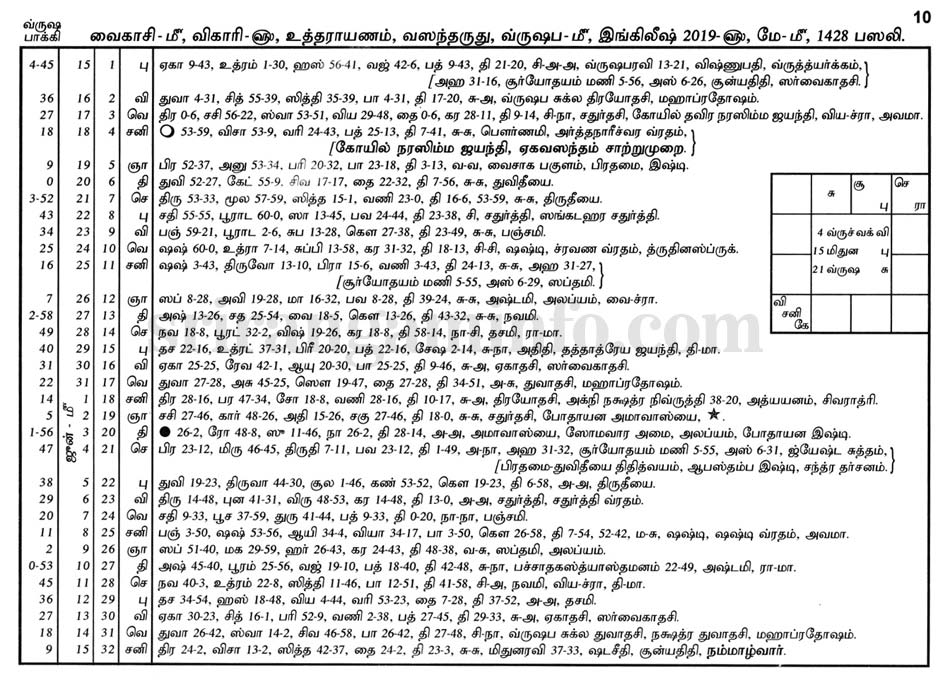 10
வ்ருஷ பாக்கி
வைகாசி-மீ, விகாரி-௵, உத்தராயணம், வஸந்தருது, வ்ருஷப-மீ, இங்கிலீஷ் 2019-௵, மே-மீ, 1428 பஸலி.
4-45 15 1 பு ஏகா 9-43, உத்ரம் 1-30, ஹஸ் 56-41, வஜ் 42-6, பத் 9-43, தி 21-20, சி-அ-அ, வ்ருஷபரவி 13-21, விஷ்ணுபதி, வ்ருத்த்யர்க்கம்,
[அஹ 31-16, சூர்யோதயம் மணி 5-56, அஸ் 6-26, சூன்யதிதி, ஸர்வைகாதசி.
36 16 2 வி துவா 4-31, சித் 55-39, ஸித்தி 35-39, பா 4-31, தி 17-20, சு-அ, வ்ருஷப சுக்ல திரயோதசி, மஹாப்ரதோஷம்.
27 17 3 வெ திர 0-6, சசி 56-22, ஸ்வா 53-51, விய 29-48, தை 0-6, கர 28-11, தி 9-14, சி-நா, சதுர்தசி, கோயில் தவிர நரஸிம்ம ஜயந்தி, விய-ச்ரா, அவமா.
18 18 4 சனி 53-59, விசா 53-9, வரி 24-43, பத் 25-13, தி 7-41, சு-சு, பௌர்ணமி, அர்த்தநாரீச்வர வ்ரதம்,
[கோயில் நரஸிம்ம ஜயந்தி, ஏகவஸந்தம் சாற்றுமுறை.
9 19 5 ஞா பிர 52-37, அனு 53-34, பரி 20-32, பா 23-18, தி 3-13, வ-வ, வைசாக பகுளம், பிரதமை, இஷ்டி.
0 20 6 தி துவி 52-27, கேட் 55-9, சிவ 17-17, தை 22-32, தி 7-56, சு-சு, துவிதீயை.
3-52 21 7 செ திரு 53-33, மூல 57-59, ஸித்த 15-1, வணி 23-0, தி 16-6, 53-59, சு-சு, திருதீயை.
43 22 8 பு சதி 55-55, பூராட 60-0, ஸா 13-45, பவ 24-44, தி 23-38, சி, சதுர்த்தி, ஸங்கடஹர சதுர்த்தி.
34 23 9 வி பஞ் 59-21, பூராட 2-6, சுப 13-28, கௌ 27-38, தி 23-49, சு-சு, பஞ்சமி.
25 24 10 வெ ஷஷ் 60-0, உத்ரா 7-14, சுப்பி 13-58, கர 31-32, தி 18-13, சி-சி, ஷஷ்டி, ச்ரவண வ்ரதம், த்ருதினஸ்ப்ருக்.
16 25 11 சனி ஷஷ் 3-43, திருவோ 13-10, பிரா 15-6, வணி 3-43, தி 24-13, சு-சு, அஹ 31-27,
[சூர்யோதயம் மணி 5-55, அஸ் 6-29, ஸப்தமி.
7 26 12 ஞா ஸப் 8-28, அவி 19-28, மா 16-32, பவ 8-28, தி 39-24, சு-சு, அஷ்டமி, அலப்யம், வை-ச்ரா.
2-58 27 13 தி அஷ் 13-26, சத 25-54, வை 18-5, கௌ 13-26, தி 43-32, சு-சு, நவமி.
49 28 14 செ நவ 18-8, பூரட் 32-2, விஷ் 19-26, கர 18-8, தி 58-14, நா-சி, தசமி, ரா-மா.
40 29 15 பு தச 22-16, உத்ரட் 37-31, பிரீ 20-20, பத் 22-16, சேஷ 2-14, சு-நா, அதிதி, தத்தாத்ரேய ஜயந்தி, தி-மா.
31 30 16 வி ஏகா 25-25, ரேவ 42-1, ஆயு 20-30, பா 25-25, தி 9-46, சு-அ, ஏகாதசி, ஸர்வைகாதசி.
22 31 17 வெ துவா 27-28, அசு 45-25, ஸௌ 19-47, தை 27-28, தி 34-51, அ-சு, துவாதசி, மஹாப்ரதோஷம்.
14 1 18 சனி திர 28-16, பர 47-34, சோ 18-8, வணி 28-16, தி 10-17, சு-அ, திரயோதசி, அக்நி நக்ஷத்ர நிவ்ருத்தி 38-20, அத்யயனம், சிவராத்ரி.
5 2 19 ஞா சசி 27-46, கார் 48-26, அதி 15-26, சகு 27-46, தி 18-0, சு-சு, சதுர்தசி, போதாயன அமாவாஸ்யை, ★.
1-56 3 20 தி ● 26-2, ரோ 48-8, ஸு 11-46, நா 26-2, தி 28-14, அ-அ, அமாவாஸ்யை, ஸோமவார அமை, அலப்யம், போதாயன இஷ்டி.
47 4 21 செ பிர 23-12, மிரு 46-45, திருதி 7-11, பவ 23-12, தி 1-49, அ-நா, அஹ 31-32, சூர்யோதயம் மணி 5-55, அஸ் 6-31, ஜ்யேஷ்ட சுத்தம்,
[பிரதமை-துவிதீயை திதித்வயம், ஆபஸ்தம்ப இஷ்டி, சந்த்ர தர்சனம்.
ஜூன்-மீ
38 5 22 பு துவி 19-23, திருவா 44-30, சூல 1-46, கண் 53-52, கௌ 19-23, தி 6-58, அ-அ, திருதீயை.
29 6 23 வி திரு 14-48, புன 41-31, விரு 48-53, கர 14-48, தி 13-0, அ-அ, சதுர்த்தி, சதுர்த்தி வ்ரதம்.
20 7 24 வெ சதி 9-33, பூச 37-59, துரு 41-44, பத் 9-33, தி 0-20, நா-நா, பஞ்சமி.
11 8 25 சனி பஞ் 3-50, ஷஷ் 53-56, ஆயி 34-4, வியா 34-17, பா 3-50, கௌ 26-58, தி 7-54, 52-42, ம-சு, ஷஷ்டி, ஷஷ்டி வ்ரதம், அவமா.
2 9 26 ஞா ஸப் 51-40, மக 29-59, ஹர் 26-43, கர 24-43, தி 48-38, வ-சு, ஸப்தமி, அலப்யம்.
0-53 10 27 தி அஷ் 45-40, பூரம் 25-56, வஜ் 19-10, பத் 18-40, தி 42-48, சு-நா, பச்சாதகஸ்த்யாஸ்தமனம் 22-49, அஷ்டமி, ரா-மா.
45 11 28 செ நவ 40-3, உத்ரம் 22-8, ஸித்தி 11-46, பா 12-51, தி 41-58, சி-அ, நவமி, விய-ச்ரா, தி-மா.
36 12 29 பு தச 34-54, ஹஸ் 18-48, விய 4-44, வரி 53-23, தை 7-28, தி 37-52, அ-அ, தசமி.
27 13 30 வி ஏகா 30-23, சித் 16-1, பரி 52-9, வணி 2-38, பத் 27-45, தி 29-33, சு-அ, ஏகாதசி, ஸர்வைகாதசி.
18 14 31 வெ துவா 26-42, ஸ்வா 14-2, சிவ 46-58, பா 26-42, தி 27-48, சி-நா, வ்ருஷப சுக்ல துவாதசி, நக்ஷத்ர துவாதசி, மஹாப்ரதோஷம்.
9 15 32 சனி திர 24-2, விசா 13-2, ஸித்த 42-37, தை 24-2, தி 23-3, சு-சு, மிதுனரவி 37-33, ஷடசீதி, சூன்யதிதி, நம்மாழ்வார்.
சு சூ பு செ ரா
4 வ்ருச்வக் வி
15 மிதுன பு
21 வ்ருஷ சு
வி சனி கே